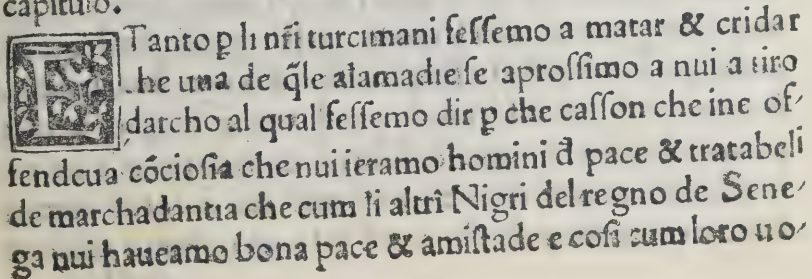 capitulo.
ETanto ꝑ li nr̃i turcimani feſſemo a matar & cridar
che una de q̃le alamadie ſe aproſſimo a nui a tiro
darcho al qual feſſemo dir ꝑ che caſſon che ine of⸗
fendeua cõcioſia che nui ieramo homini d̃ pace & tratabeli
de marchadantia che cum li altri Nigri del regno de Sene⸗
ga nui haueamo bona pace & amiſtade e coſi cum loro uo⸗